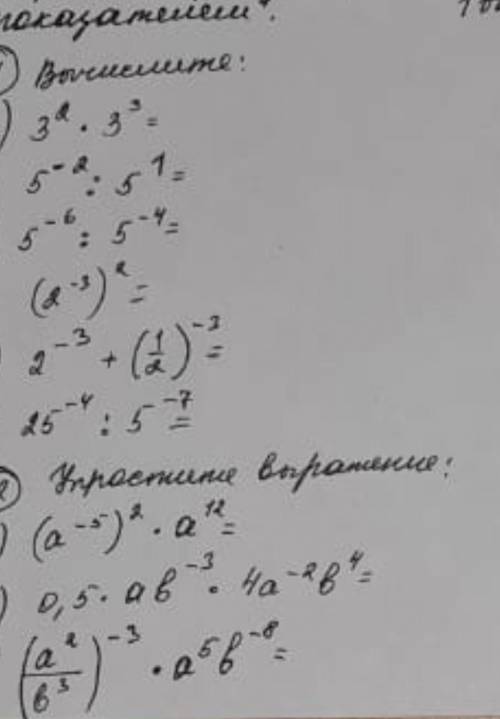 показателем".
1) Вычислите:
) 3² · 3³ =
5⁻² : 5¹ =
5⁻⁶ : 5⁻⁴ =
(2⁻³)² =
2⁻³ + (1/2)⁻³ =
25⁻⁴ : 5⁻⁷ =
2) Упростите выражение:
) (a⁻⁵)² · a¹² =
) 0,5 · ab⁻³ · 4a⁻²b⁴ =
(a²/b³)⁻³ · a⁵b⁻⁸ =